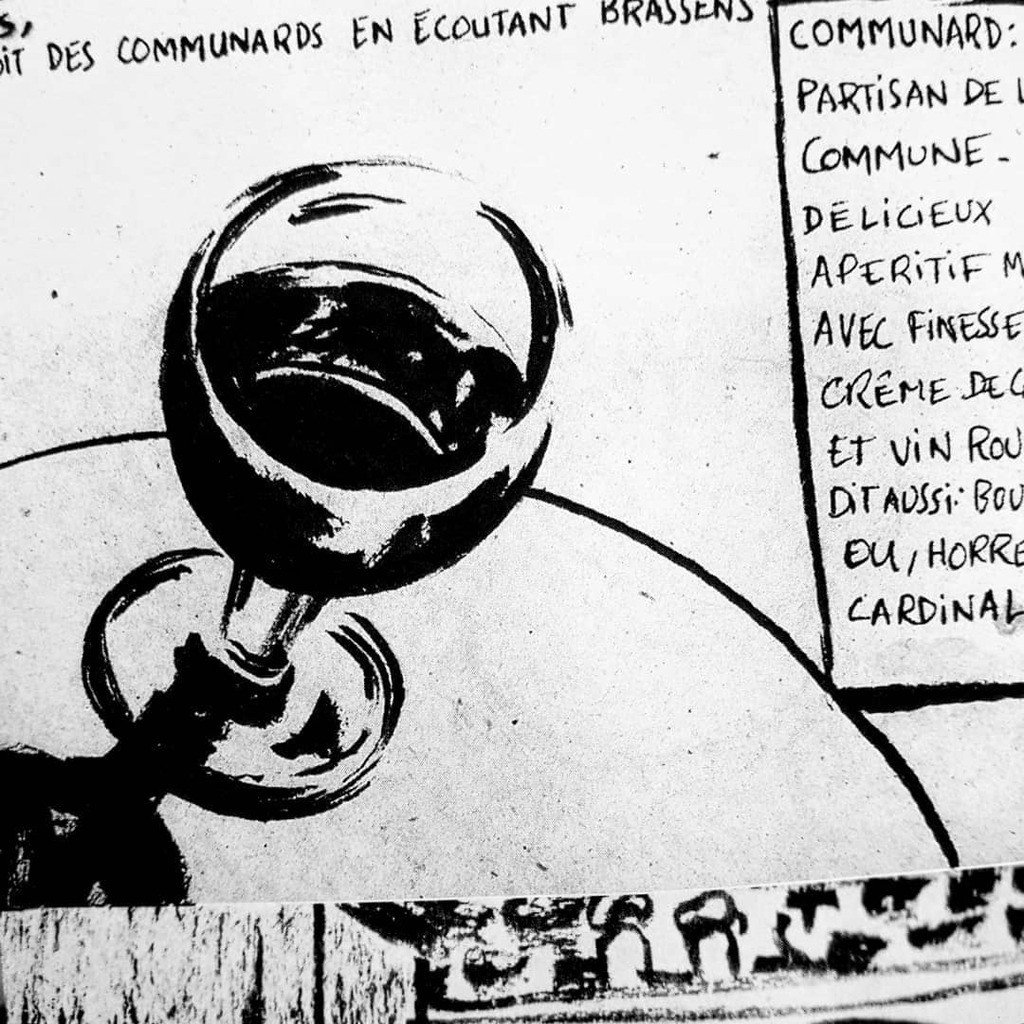 S,
OIT DES COMMUNARDS EN ÉCOUTANT BRASSENS
COMMUNARD:
PARTISAN DE L
COMMUNE -
DÉLICIEUX
APERITIF M
AVEC FINESSE
CRÊME DE C
ET VIN ROU
DIT AUSSI: BOU
OU, HORRE
CARDINAL